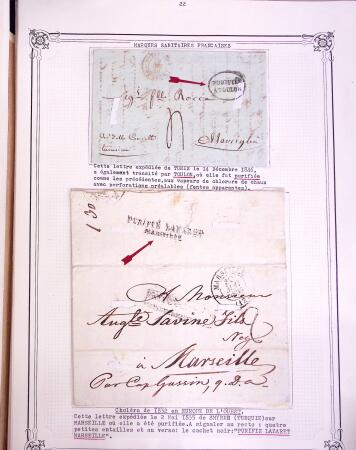 22
MARQUES SANITAIRES FRANCAISES
PURIFIÉ
A TOULON
Sigr
Rocca
Marsiglia
Cette lettre expédiée de TUNIS le 14 Décembre 1846,
a également transité par TOULON, où elle fut purifiée
comme les précédentes, aux vapeurs de chlorure de chaux
avec perforations préalables (fentes apparentes).
130
PURIFIÉ LAZARET
MARSEILLE
A Monsieur
Augte Savine Fils
Negt
à Marseille
Par Cap. Gasson, q.D.a.
Choléra de 1832 en EUROPE DE L'OUEST.
Cette lettre expédiée le 2 Mai 1835 de SMYRNE (TURQUIE) sur
MARSEILLE où elle a été purifiée. A signaler au recto : quatre
petites entailles et au verso: le cachet noir: "PURIFIE LAZARET
MARSEILLE".